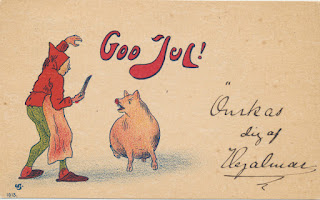 Goo Jul!
"Onskas
dig af
Hjalmar
1513.